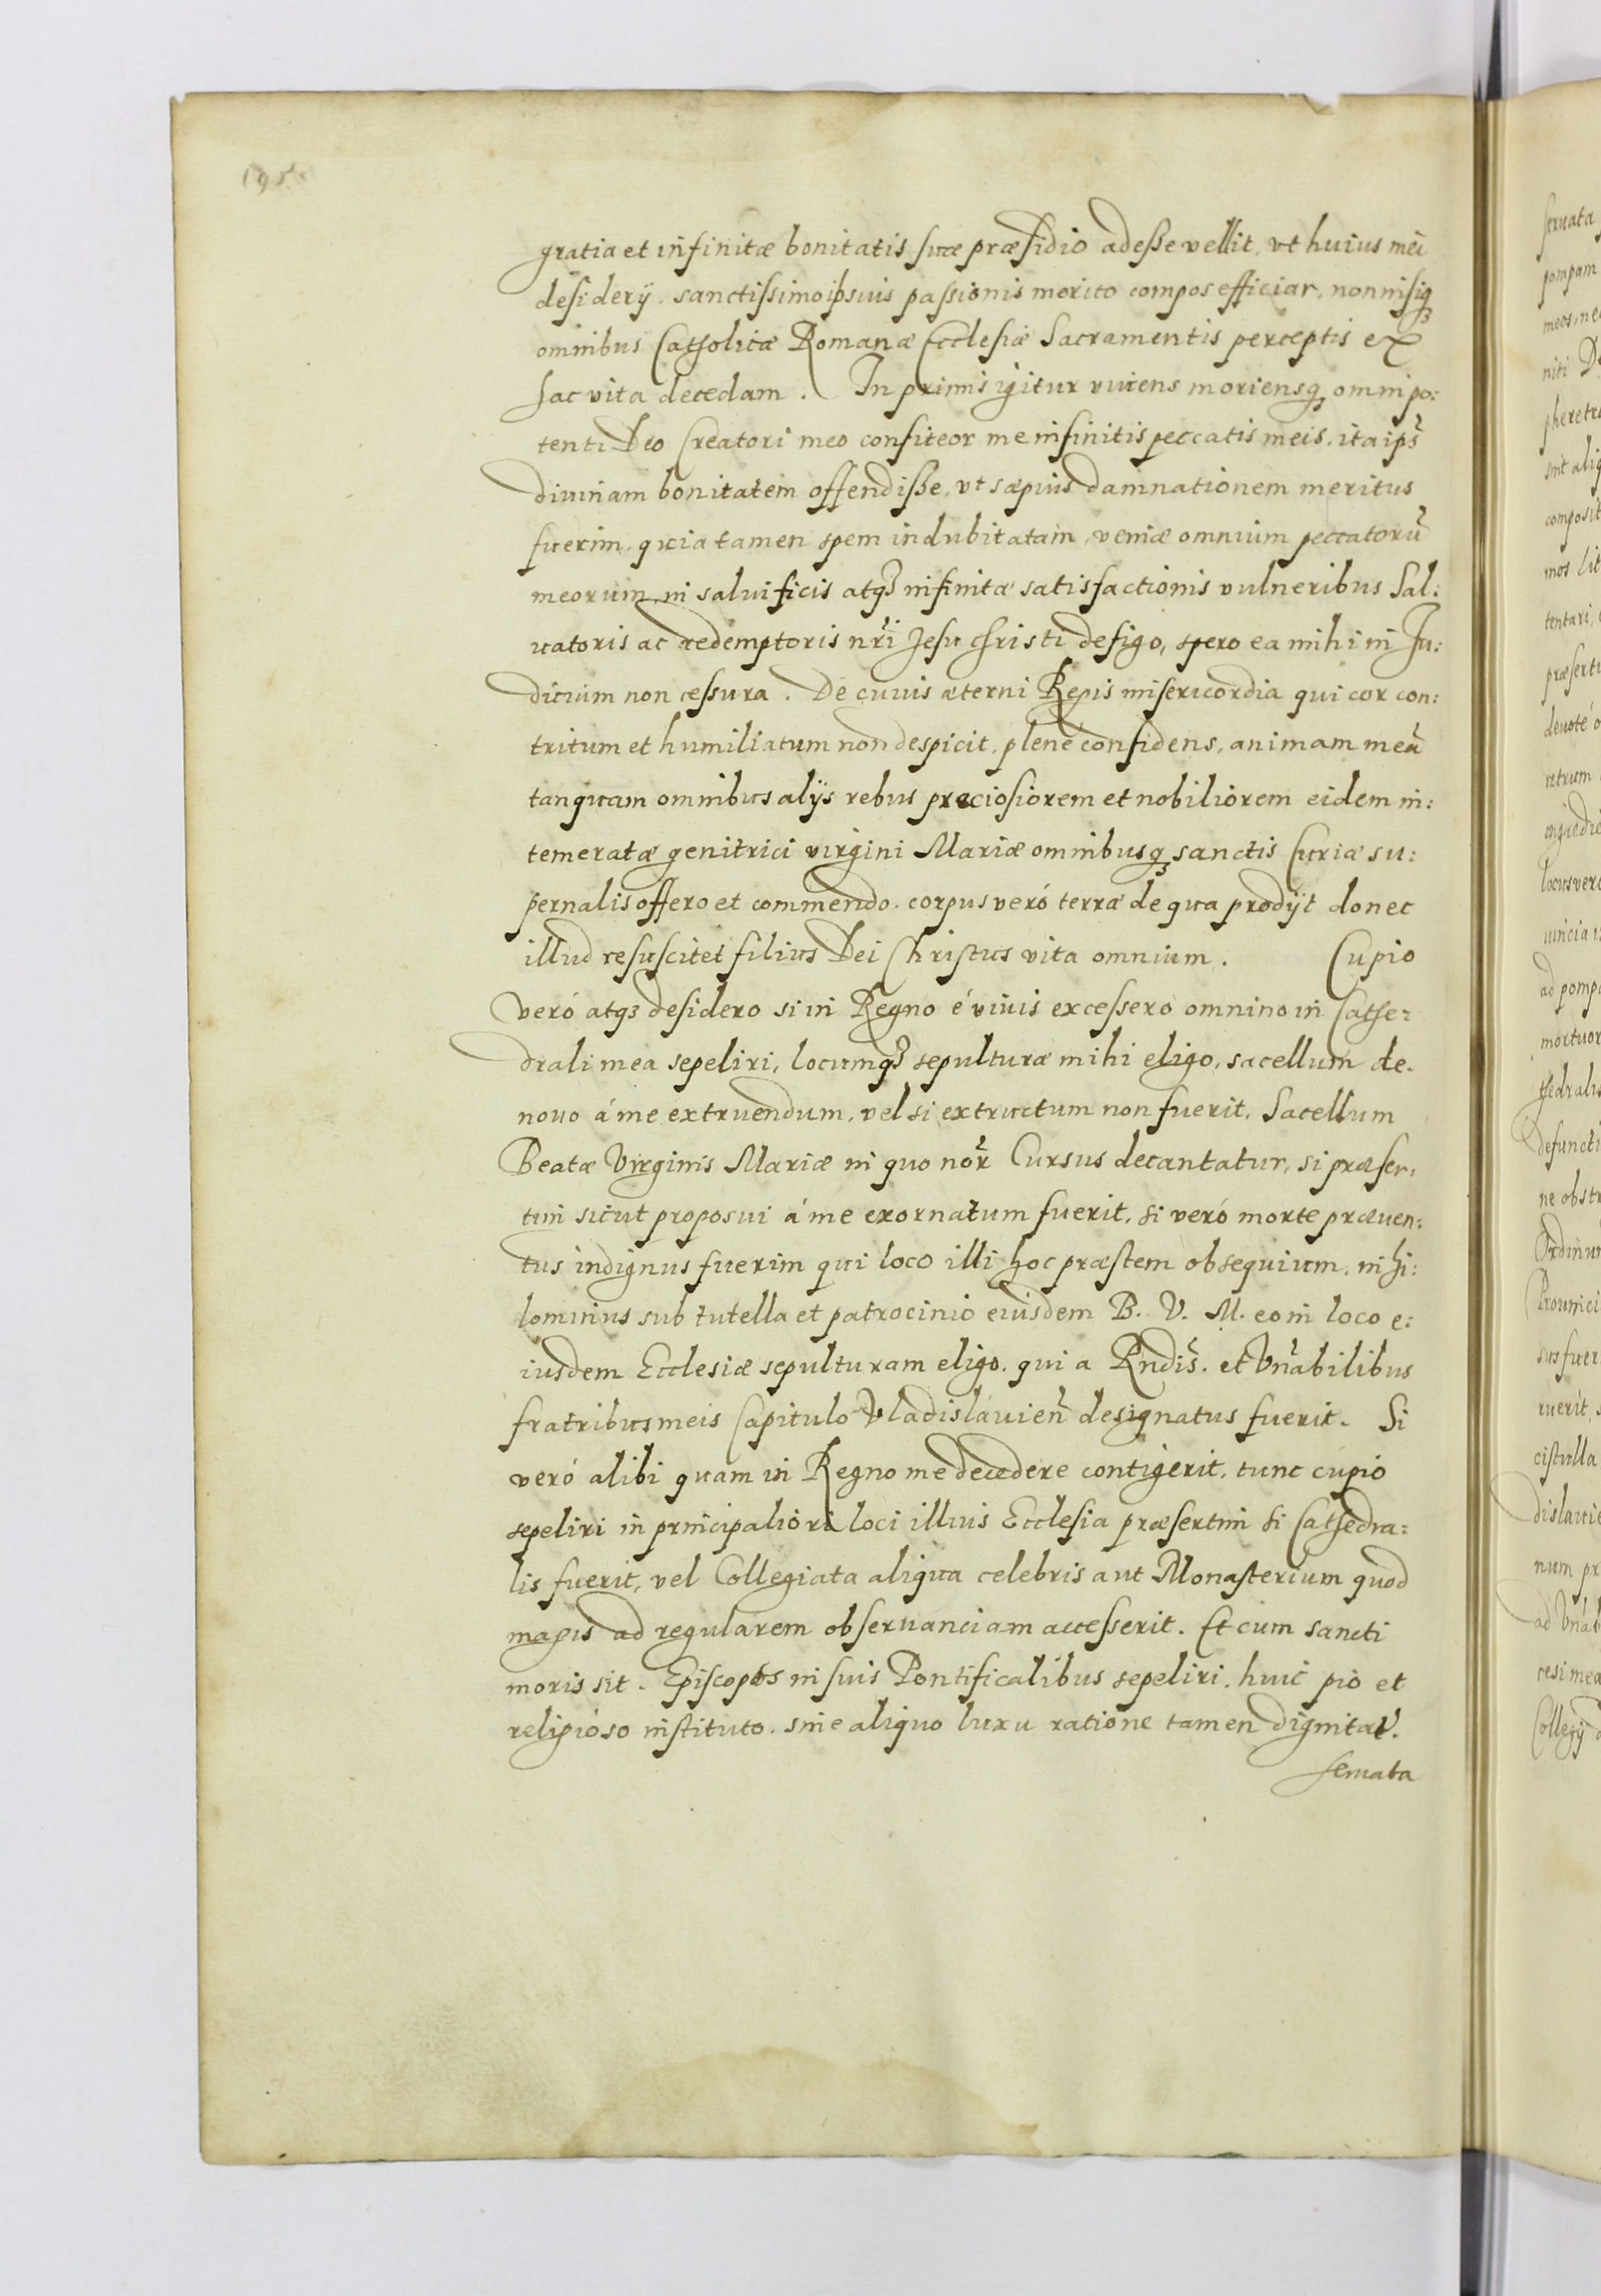 gratia et infinitæ bonitatis suæ præsidio adesse vellit, vt huius mei
desiderij, sanctissimo ipsius passionis merito compos efficiar, nonnisiq́ꝫ
omnibus Catholicæ Romanæ Ecclesiæ Sacramentis perceptis ex
hac vita decedam. In primis igitur viuens moriensqꝫ omnipo:
tenti Deo Creatori meo confiteor me infinitis peccatis meis, ita ips̃
diuinam bonitatem offendisse, vt sæpius damnationem meritus
fuerim, quia tamen spem indubitatam, veniæ omnium peccatorũ
meorum, in saluificis atqꝫ infinitæ satisfactionis vulneribus Sal:
uatoris ac redemptoris nr̃i Jesu Christi defigo, spero ea mihi in Ju:
dicium non cessura. De cuius æterni Regis misericordia qui cor con:
tritum et humiliatum non despicit, plené confidens, animam meã
tanquam omnibus alijs rebus preciosiorem et nobiliorem eidem in:
temeratæ genitrici virgini Mariæ omnibusqꝫ sanctis Curiæ su:
pernalis offero et commendo. corpus veró terræ de qua prodijt donec
illud resuscitet filius Dei Christus vita omnium. Cupio
veró atqꝫ desidero si in Regno é viuis excessero omnino in Cathe:
drali mea sepeliri, locumqꝫ sepulturæ mihi eligo, sacellum de.
nouo á me extruendum, vel si extructum non fuerit, Sacellum
Beatæ Virginis Mariæ in quo nor̃ Cursus decantatur, si præser:
tim sicut proposui á me exornatum fuerit, si veró morte præuen:
tus indignus fuerim qui loco illi hoc præstem obsequium, nihi:
lominus sub tutella et patrocinio eiusdem B. V. M. eo in loco e:
iusdem Ecclesiæ sepulturam eligo, qui a Rndis̃. et Vñabilibus
fratribus meis Capitulo Vladislauieñ designatus fuerit. Si
veró alibi quam in Regno me decedere contigerit, tunc cupio
sepeliri in principaliori loci illius Ecclesia præsertim si Cathedra:
lis fuerit, vel Collegiata aliqua celebris aut Monasterium quod
magis ad regularem obseruanciam accesserit. Et cum sancti
moris sit. Episcopos in suis Pontificalibus sepeliri, huic pio et
religioso instituto, sine aliquo luxu ratione tamen dignitat̃.
seruata